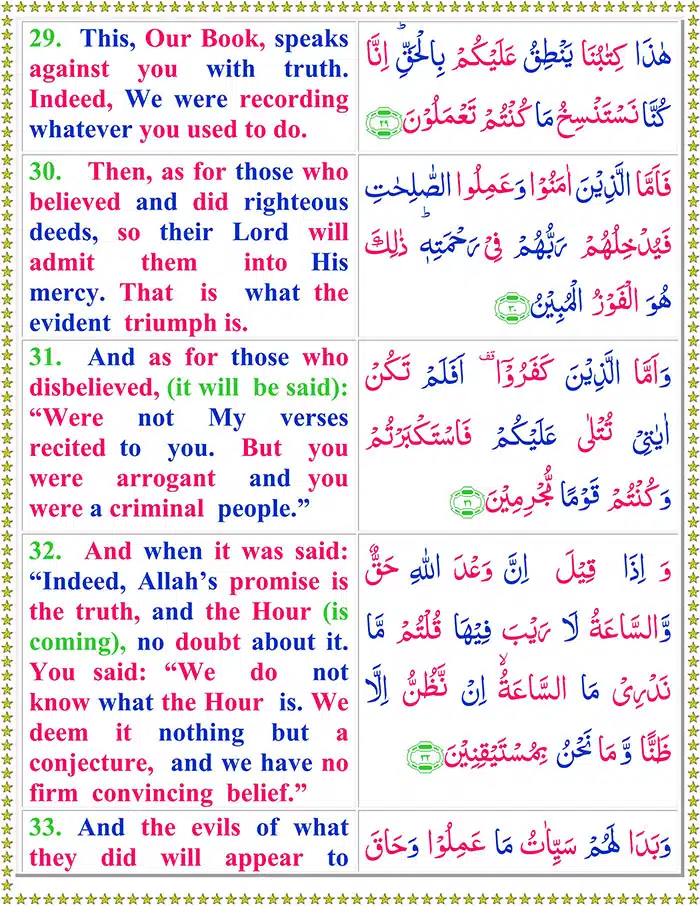 29. This, Our Book, speaks
against you with truth.
Indeed, We were recording
whatever you used to do.
هٰذَا كِتٰبُنَا يَنْطِقُ عَلَيْكُمْ بِالْحَقِّ ؕ اِنَّا
كُنَّا نَسْتَنْسِخُ مَا كُنْتُمْ تَعْمَلُوْنَ ﴿۲۹﴾
30. Then, as for those who
believed and did righteous
deeds, so their Lord will
admit them into His
mercy. That is what the
evident triumph is.
فَاَمَّا الَّذِيْنَ اٰمَنُوْا وَعَمِلُوا الصّٰلِحٰتِ
فَيُدْخِلُهُمْ رَبُّهُمْ فِيْ رَحْمَتِهٖ ؕ ذٰلِكَ
هُوَ الْفَوْزُ الْمُبِيْنُ ﴿۳۰﴾
31. And as for those who
disbelieved, (it will be said):
“Were not My verses
recited to you. But you
were arrogant and you
were a criminal people.”
وَاَمَّا الَّذِيْنَ كَفَرُوْٓا ۟ اَفَلَمْ تَكُنْ
اٰيٰتِيْ تُتْلٰى عَلَيْكُمْ فَاسْتَكْبَرْتُمْ
وَكُنْتُمْ قَوْمًا مُّجْرِمِيْنَ ﴿۳۱﴾
32. And when it was said:
“Indeed, Allah’s promise is
the truth, and the Hour (is
coming), no doubt about it.
You said: “We do not
know what the Hour is. We
deem it nothing but a
conjecture, and we have no
firm convincing belief.”
وَ اِذَا قِيْلَ اِنَّ وَعْدَ اللّٰهِ حَقٌّ
وَّالسَّاعَةُ لَا رَيْبَ فِيْهَا قُلْتُمْ مَّا
نَدْرِيْ مَا السَّاعَةُ ۙ اِنْ نَّظُنُّ اِلَّا
ظَنًّا وَّ مَا نَحْنُ بِمُسْتَيْقِنِيْنَ ﴿۳۲﴾
33. And the evils of what
they did will appear to
وَبَدَا لَهُمْ سَيِّاٰتُ مَا عَمِلُوْا وَحَاقَ